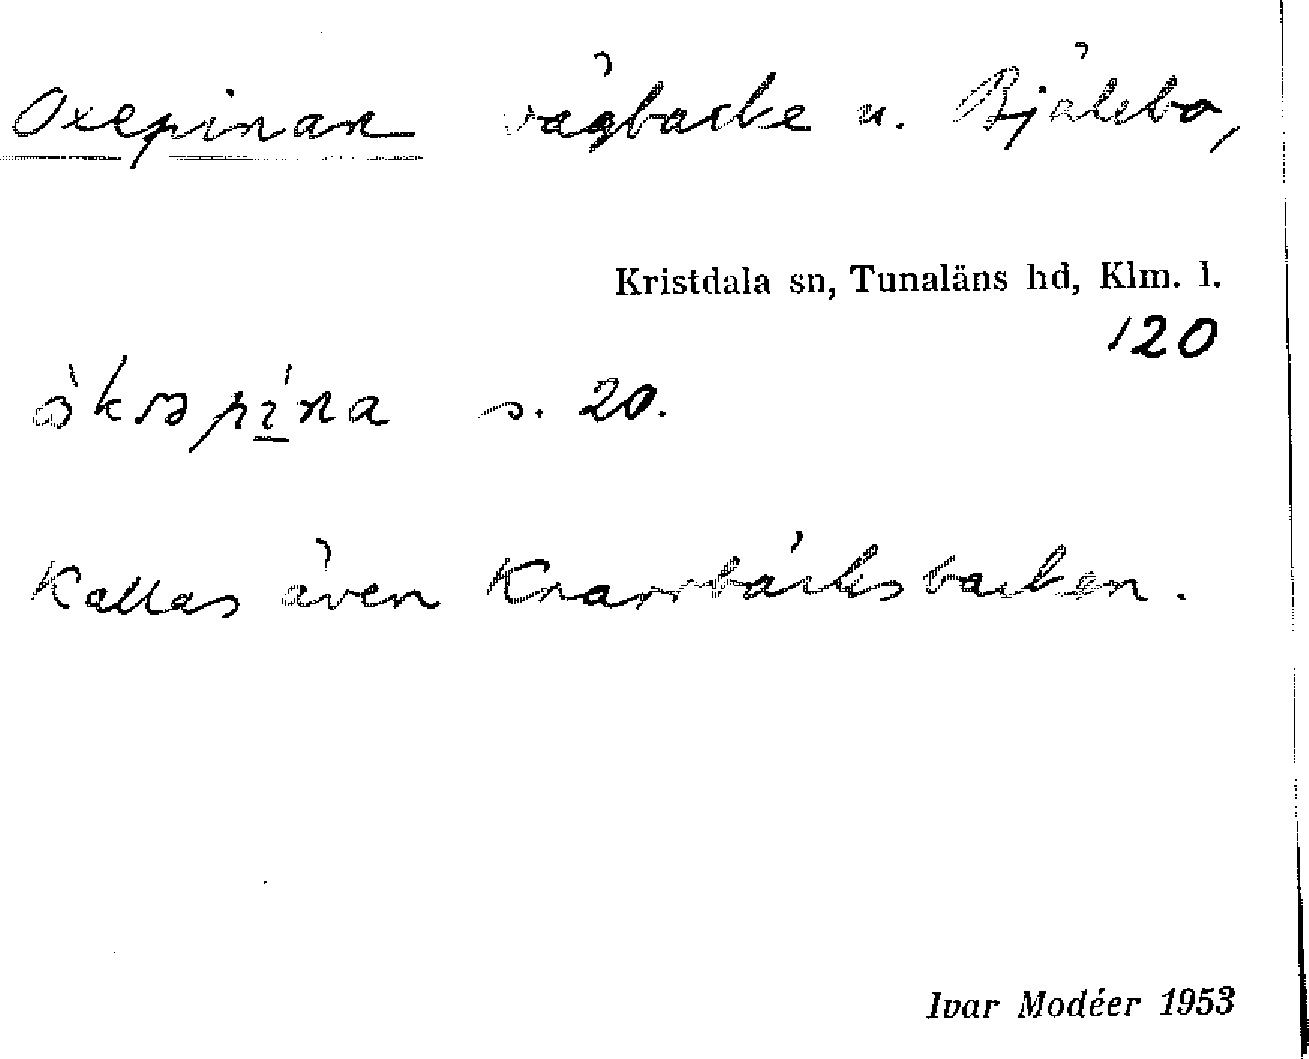 Oxepinan vägbacke u. Bjälebo,
Kristdala sn, Tunaläns hd, Klm. l.
120
s. 20.
Kallas även Knarrbäcksbacken.
Ivar Modéer 1953